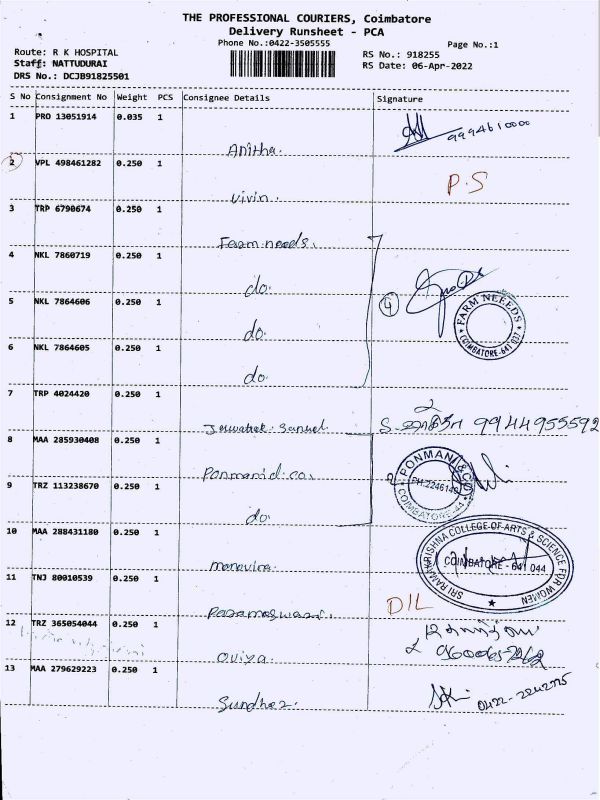 THE PROFESSIONAL COURIERS, Coimbatore
Delivery Runsheet - PCA
Phone No.:0422-3505555
Page No.:1
Route: R K HOSPITAL
Staff: NATTUDURAI
DRS No.: DCJB91825501
RS No.: 918255
RS Date: 06-Apr-2022
S No Consignment No Weight PCS Consignee Details Signature
1 PRO 13051914 0.035 1
Anitha. 9994610000
2 VPL 498461282 0.250 1
Vivin. P.S
3 TRP 6790674 0.250 1
Farm needs.
4 NKL 7860719 0.250 1
do.
5 NKL 7864606 0.250 1
do. 4
FARM NEEDS
COIMBATORE-641
6 NKL 7864605 0.250 1
do.
7 TRP 4024420 0.250 1
9944955592
8 MAA 285930408 0.250 1
Ponmani & co.
PONMANI & CO
COIMBATORE-44
9 TRZ 113238670 0.250 1
do.
10 MAA 288431180 0.250 1
SRI RAMAKRISHNA COLLEGE OF ARTS & SCIENCE FOR WOMEN
COIMBATORE - 641 044
11 TNJ 80010539 0.250 1
Parameswari. D/L
12 TRZ 365054044 0.250 1
Oviya
13 MAA 279629223 0.250 1
Sundher.